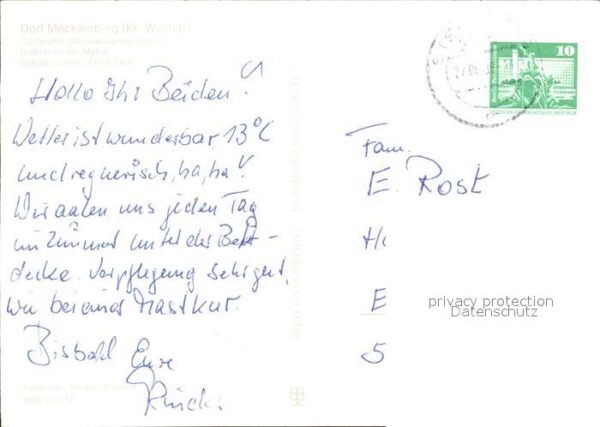 Dorf Mecklenburg (Kr. Wismar)
Gaststätte „Mecklenburger Mühle"
Galerie in der Mühle
Hallo Ihr Beiden!
Wetter ist wunderbar 13°C
und regnerisch, ha, ha!
Wir aalen uns jeden Tag
im Zimmer unter der Bett-
decke. Verpflegung sehr gut,
wie bei einer Mastkur.
Bisbald Eure
10
DEUTSCHE DEMOKRATISCHE REPUBLIK
Fam.
E. Rost
H
E
5
privacy protection
Datenschutz